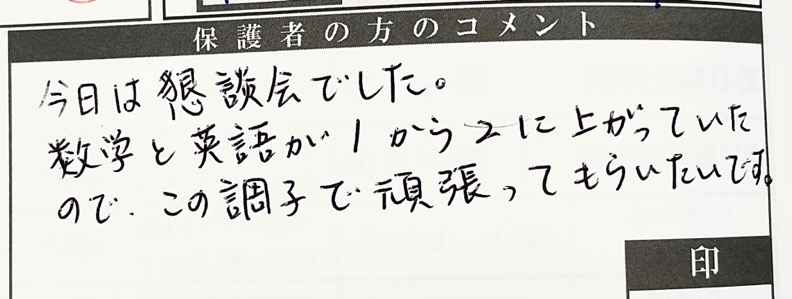 保護者の方のコメント
今日は懇談会でした。
数学と英語が1から2に上がっていた
ので、この調子で頑張ってもらいたいです。
印